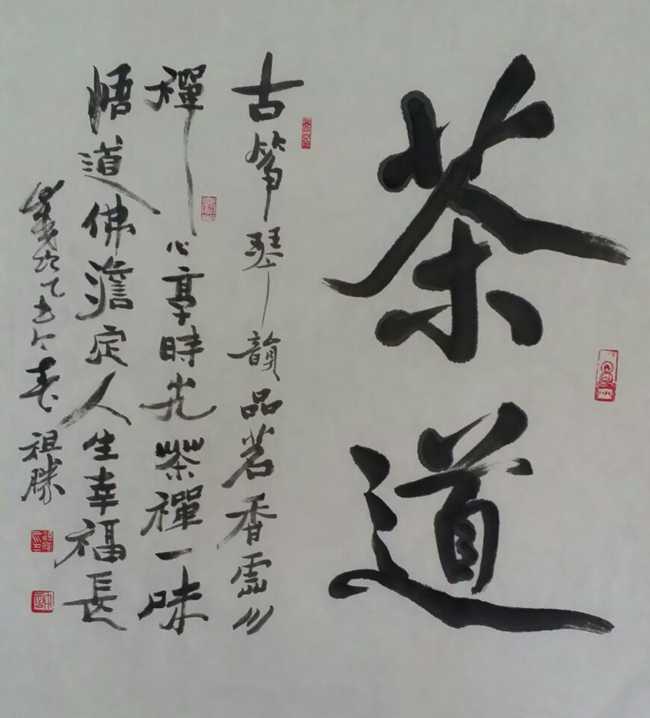 茶道
古筝琴韻品茗香
禪心享時光茶禪一味
悟道佛澹定人生幸福長
春祖勝